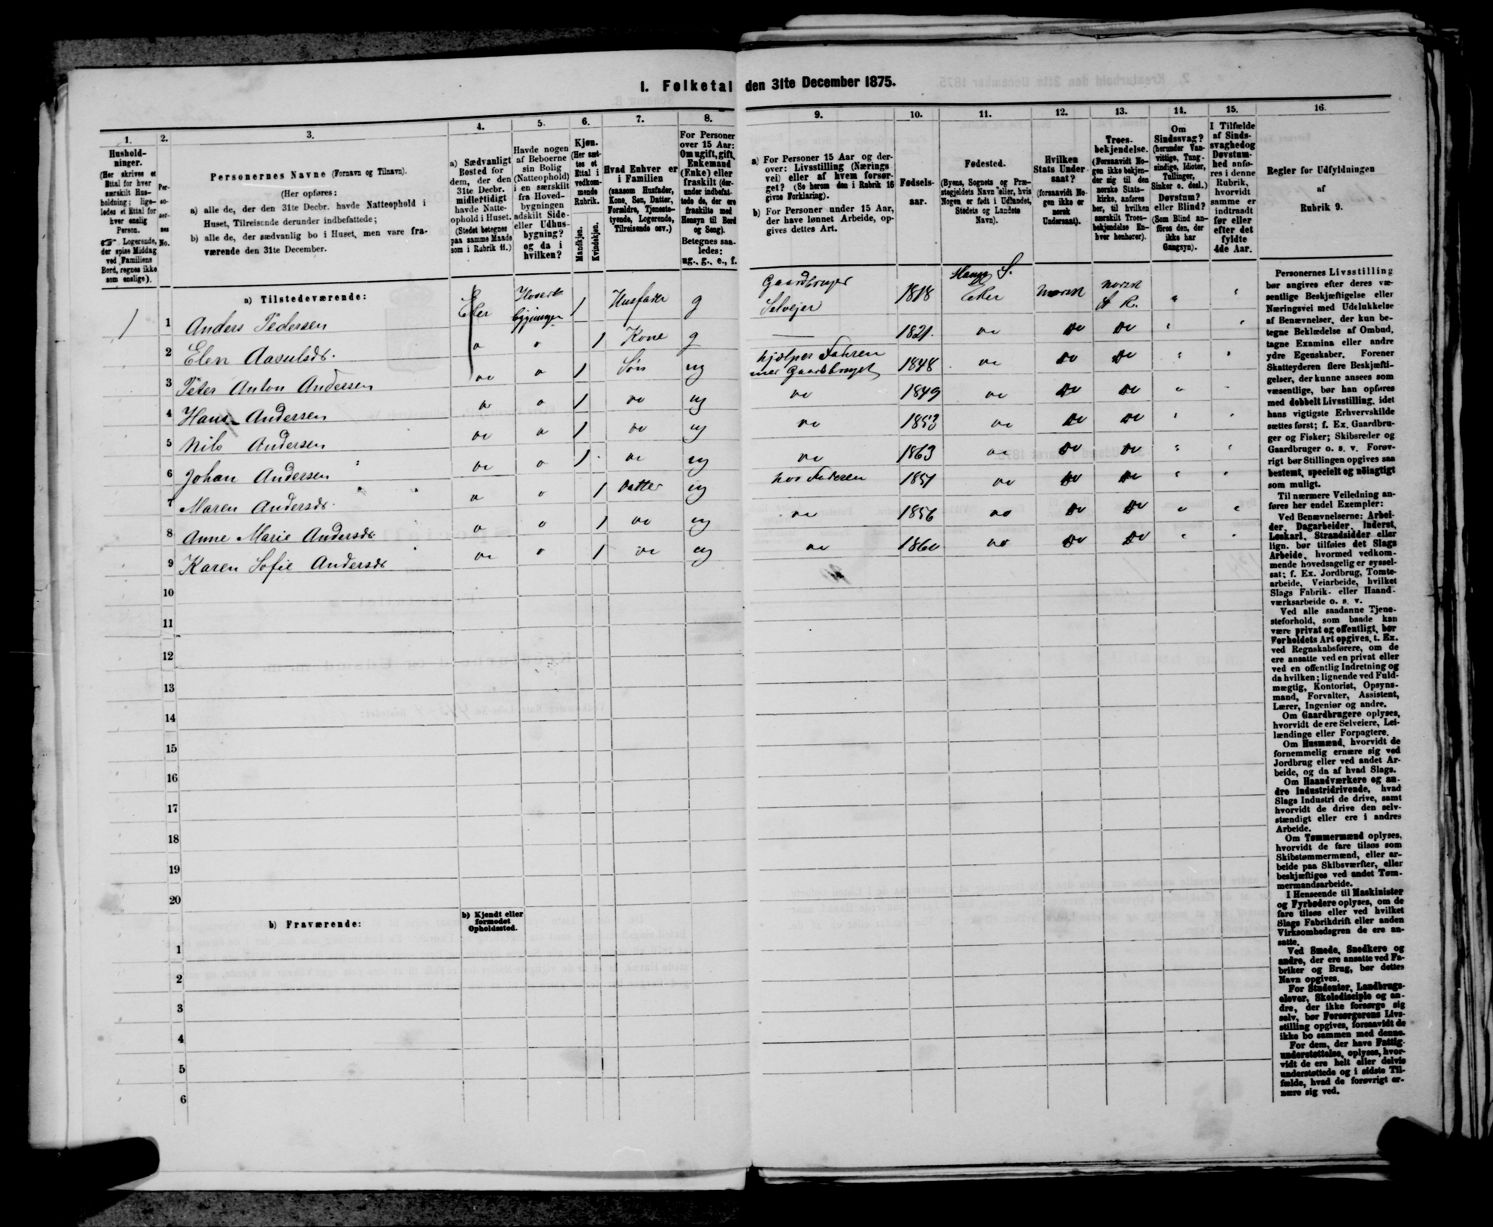 1. Folketal den 31te December 1875.
1. 2. 3. 4. 5. 6. 7. 8. 9. 10. 11. 12. 13. 14. 15. 16.
Personernes Navne (Fornavn og Tilnavn).
(Her opføres:
a) alle de, der den 31te Decbr. havde Natteophold i
Huset, Tilreisende derunder indbefattede;
b) alle de, der sædvanlig bo i Huset, men vare fra-
værende den 31te December.
a) Sædvanligt
Bosted for
dem, der den
31te Decbr.
midlertidigt
havde Natte-
ophold i Huset.
Havde nogen
af Beboerne
sin Bolig
(Natteophold)
i en særskilt
fra Hoved-
bygningen
adskilt Side-
eller Udhus-
bygning?
og da i
hvilken?
Kjøn.
Mandkjøn.
Kvindekjøn.
Hvad Enhver er
i Familien
(saasom Husfader,
Kone, Søn, Datter,
Forældre, Tjeneste-
tyende, Logerende,
Tilreisende osv.)
For Personer
over 15 Aar:
Om ugift, gift,
Enkemand
(Enke) eller
fraskilt
Betegnes saa-
ledes:
ug., g., e., f.
a) For Personer 15 Aar og der-
over: Livsstilling (Nærings
vei) eller af hvem forsør-
get? (Se herom den i Rubrik 16
givne Forklaring).
b) For Personer under 15 Aar,
der have lønnet Arbeide, op-
gives dettes Art.
Fødsels-
aar.
Fødested.
(Byens, Sognets og Præ-
stegjeldets Navn eller, hvis
Nogen er født i Udlandet,
Stedets og Landets
Navn).
Hvilken
Stats Under-
saat?
(forsaavidt No-
gen ikke er
norsk
Undersaat).
Troes-
bekjendelse.
Om
Sindssvag?
Døvstum?
eller Blind?
I Tilfælde
af Sinds-
svaghed og
Døvstum-
hed anfø-
res i denne
Rubrik,
hvorvidt
samme er
indtraadt
før eller
efter det
fyldte
4de Aar.
Regler for Udfyldningen
af
Rubrik 9.
a) Tilstedeværende:
1 1 Anders Pedersen Eker 1 Husfader g Gaardbruger Selveier 1818 Haug S. Eker norsk norsk St K. "
2 Elen Aasulsdr. " " 1 Kone g 1821 do do do " "
3 Peter Anton Andersen do " 1 Søn ug hjælper Faderen med Gaardbruget 1848 do do do " "
4 Hans Andersen " " 1 do ug do 1849 do do do " "
5 Nils Andersen do " 1 do ug do 1853 do do do " "
6 Johan Andersen do " 1 do ug do 1863 do do do " "
7 Maren Andersdr. " " 1 Datter ug hos Faderen 1851 do do do " "
8 Anne Marie Andersdr. " " 1 do ug do 1856 do do do " "
9 Karen Sofie Andersdr do " 1 do ug do 1860 do do do " "
10
11
12
13
14
15
16
17
18
19
20
b) Fraværende:
b) Kjendt eller
formodet
Opholdssted.
1
2
3
4
5
6
Personernes Livsstilling
bør angives efter deres væ-
sentlige Beskjæftigelse eller
Næringsvei med Udelukkelse
af Benævnelser, der kun be-
tegne Beklædelse af Ombud,
tagne Examina eller andre
ydre Egenskaber. Forener
Skatteyderen flere Beskjæfti-
gelser, der kunne ansees som
væsentlige, bør han opføres
med dobbelt Livsstilling, idet
hans vigtigste Erhvervskilde
sættes først; f. Ex. Gaardbru-
ger og Fisker; Skibsreder og
Gaardbruger o. s. v. Forøv-
rigt bør Stillingen opgives saa
bestemt, specielt og nøiagtigt
som muligt.
Til nærmere Veiledning an-
føres her endel Exempler:
Ved Benævnelserne: Arbei-
der, Dagarbeider, Inderst,
Løskarl, Strandsidder eller
lign. bør tilføies det Slags
Arbeide, hvormed vedkom-
mende hovedsagelig er syssel-
sat; f. Ex. Jordbrug, Tomte-
arbeide, Veiarbeide, hvilket
Slags Fabrik- eller Haand-
værksarbeide o. s. v.
Ved alle saadanne Tjene-
steforhold, som baade kan
være privat og offentligt, bør
Forholdets Art opgives, t. Ex.
ved Regnskabsførere, om de
ere ansatte ved en privat eller
ved en offentlig Indretning og
da hvilken; lignende ved Fuld-
mægtig, Kontorist, Opsyns-
mand, Forvalter, Assistent,
Lærer, Ingeniør og andre.
Om Gaardbrugere oplyses,
hvorvidt de ere Selveiere, Lei-
lændinge eller Forpagtere.
Om Husmænd, hvorvidt de
fornemmelig ernære sig ved
Jordbrug eller ved andet Ar-
beide, og da af hvad Slags.
Om Haandværkere og an-
dre Industridrivende, hvad
Slags Industri de drive, samt
hvorvidt de drive den selv-
stændigt eller ere i andres
Arbeide.
Om Tømmermænd oplyses,
hvorvidt de fare tilsøs som
Skibstømmermænd, eller ar-
beide paa Skibsværfter, eller
beskjæftiges ved andet Tøm-
mermandsarbeide.
I Henseende til Maskinister
og Fyrbødere oplyses, om de
fare tilsøs eller ved hvilket
Slags Fabrikdrift eller anden
Virksomhedsgren de ere an-
satte.
Ved Smede, Snedkere og
andre, der ere ansatte ved Fa-
briker og Brug, bør dettes
Navn opgives.
For Studenter, Landbrugs-
elever, Skoledisciple og an-
dre, der ikke forsørge sig
selv, bør Forsørgerens Livs-
stilling opgives, forsaavidt de
ikke bo sammen med denne.
For dem, der have Fattig-
understøttelse, oplyses, hvor-
vidt de ere helt eller delvis
understøttede og i sidste Til-
fælde, hvad de forøvrigt er-
nære sig ved.